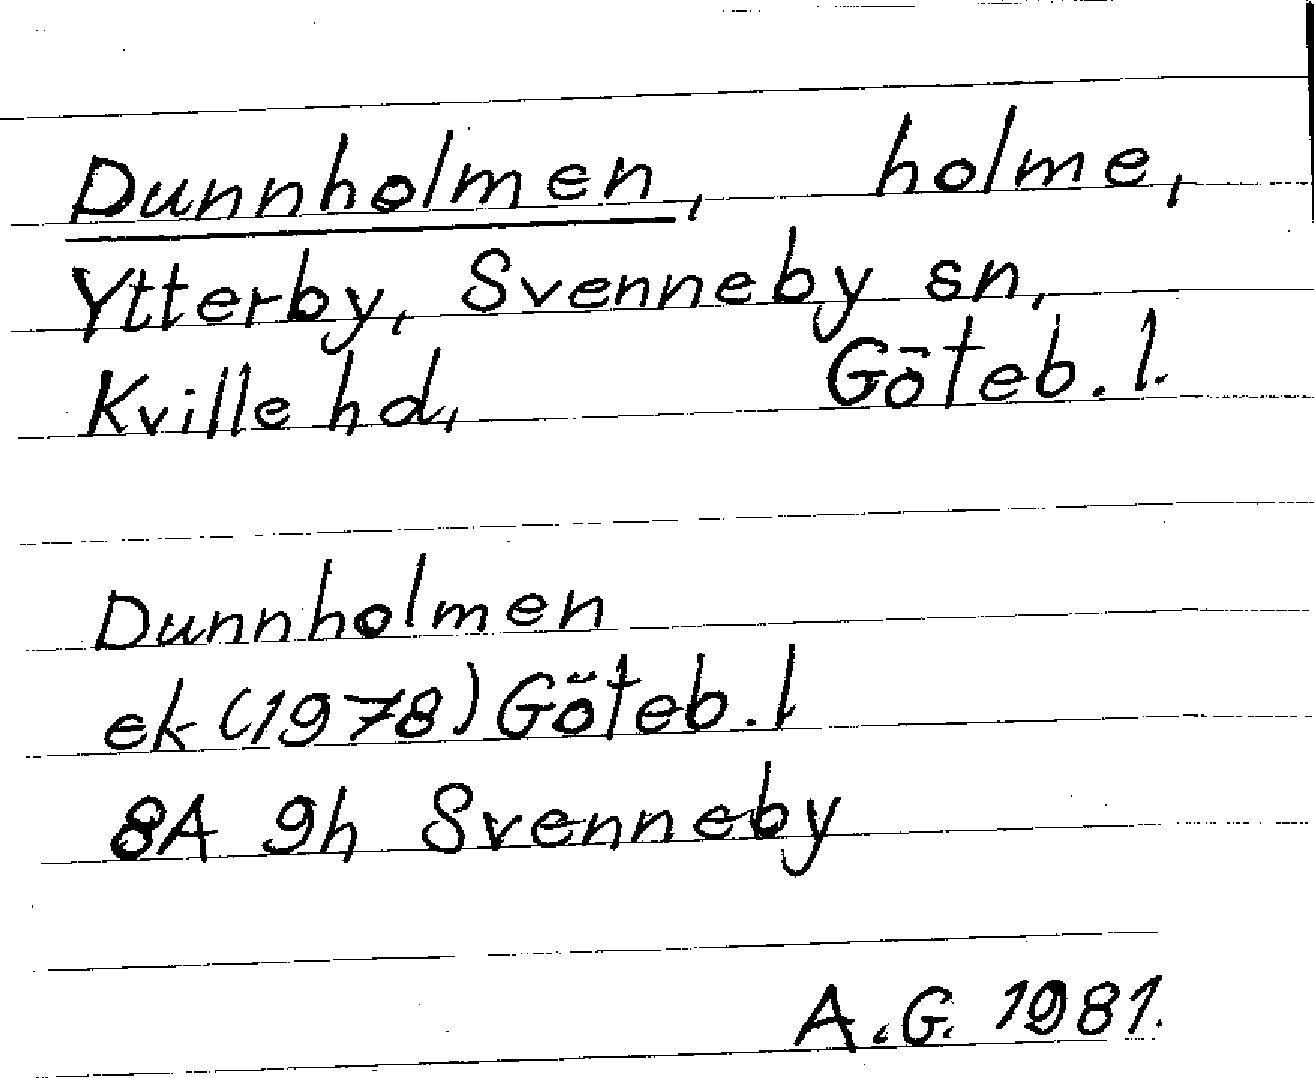 Dunnholmen, holme,
Ytterby, Svenneby sn,
Kville hd, Göteb. l.
Dunnholmen
ek (1978) Göteb. l
8A 9h Svenneby
A.G. 1981.